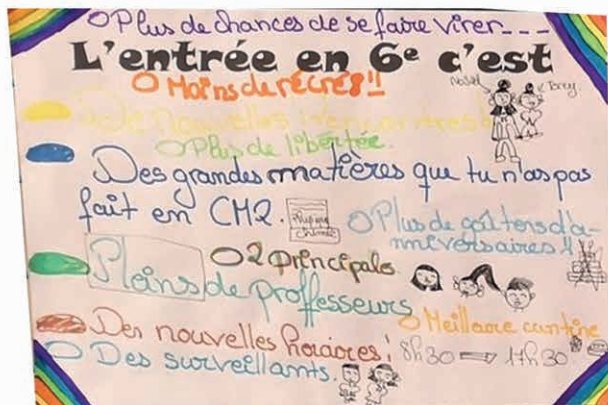 Plus de chances de se faire virer---
L'entrée en 6e c'est
Moins de récrés!!
de Nouvelles Rencontres!
Plus de libertée.
Des grandes matières que tu n'as pas
fait en CM2.
Plus de goûters d'a-
nniversaires!!
2 principals
Pleins de proffesseurs
Meilleure cantine
Des nouvelles horaires! 8h30 ⇒ 17h30
Des surveillants.